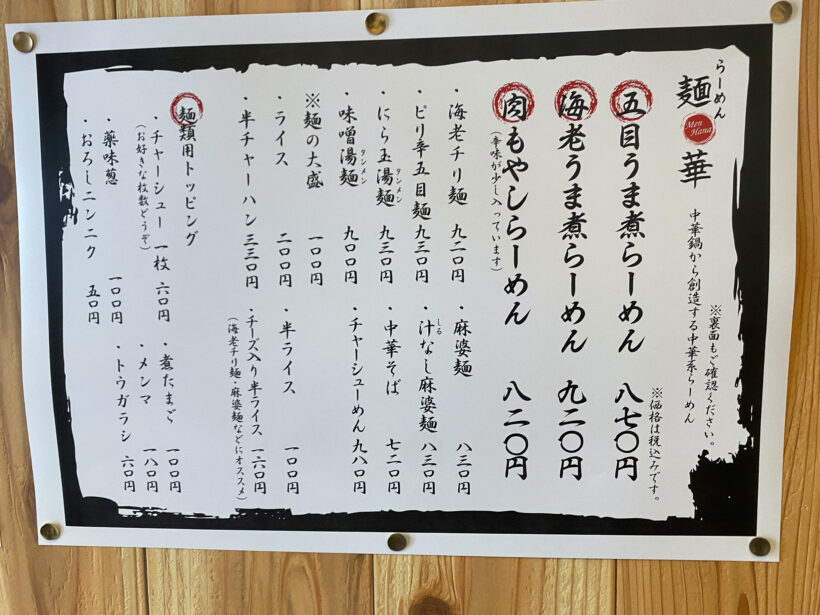 らーめん
麺華
Men Hana
中華鍋から創造する中華系らーめん
※裏面もご確認ください。
※価格は税込みです。
五目うま煮らーめん 八七〇円
海老うま煮らーめん 九二〇円
肉もやしらーめん 八二〇円
(辛味が少し入っています)
・海老チリ麺 九二〇円
・麻婆麺 八三〇円
・ピリ辛五目麺 九三〇円
・汁なし麻婆麺 八三〇円
しる
・にら玉湯麺 九三〇円
タンメン
・中華そば 七二〇円
・味噌湯麺 九〇〇円
タンメン
・チャーシューめん 九八〇円
※麺の大盛 一〇〇円
・ライス 二〇〇円
・半ライス 一〇〇円
・半チャーハン 三三〇円
・チーズ入り半ライス 一六〇円
(海老チリ麺・麻婆麺などにオススメ)
麺類用トッピング
・チャーシュー 一枚 六〇円
(お好きな枚数どうぞ)
・煮たまご 一〇〇円
・メンマ 一八〇円
・薬味葱 一〇〇円
・トウガラシ 六〇円
・おろしニンニク 五〇円